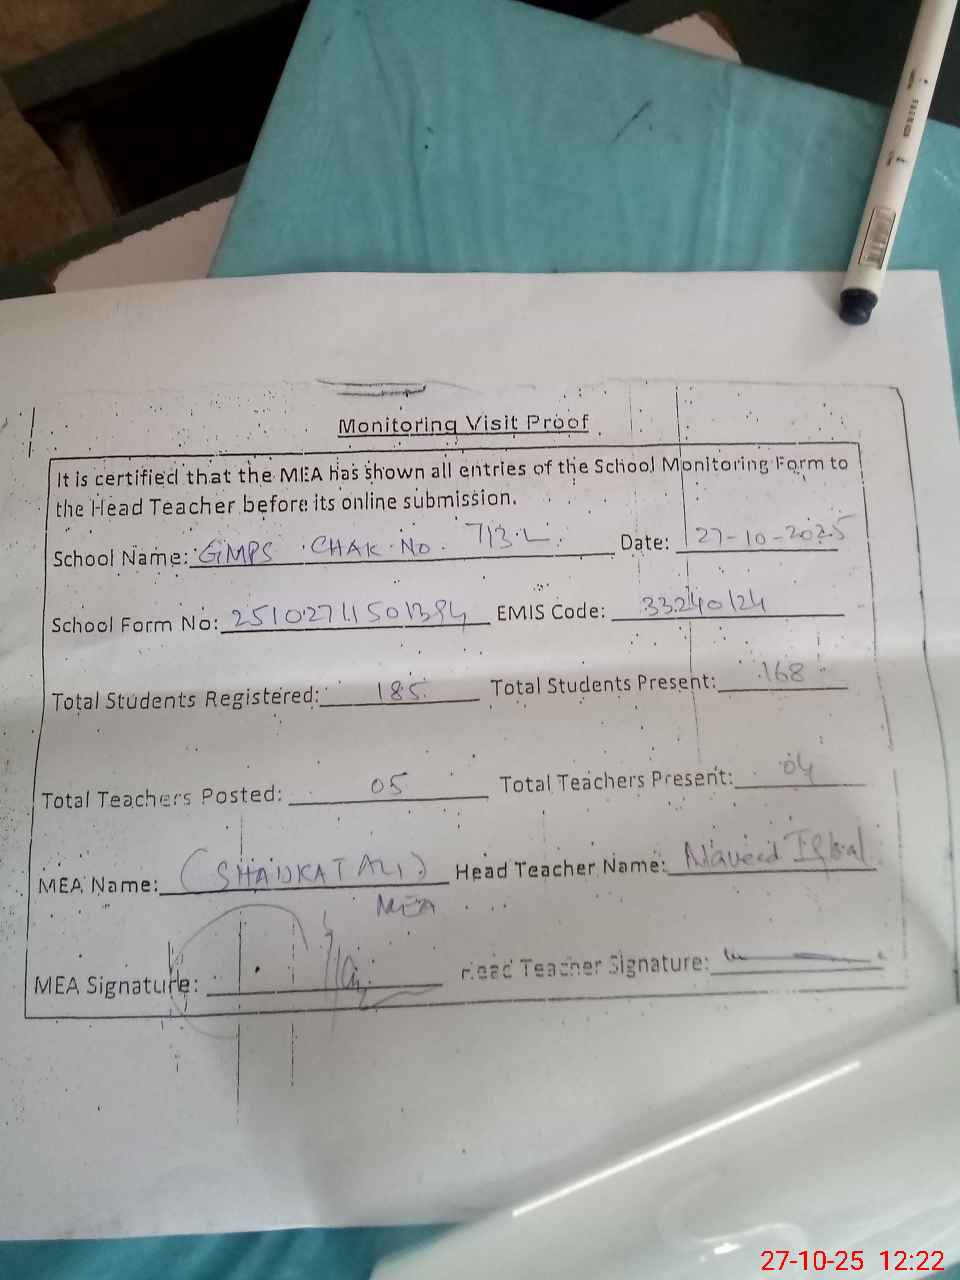 Monitoring Visit Proof
It is certified that the MEA has shown all entries of the School Monitoring Form to
the Head Teacher before its online submission.
School Name: GMPS CHAK No. 713.L Date: 27-10-2025
School Form No: EMIS Code: 33240124
Total Students Registered: 185 Total Students Present: 168
Total Teachers Posted: 05 Total Teachers Present: 04
MEA Name: (SHAUKAT ALI) Head Teacher Name: Naveed Iqbal
MEA
MEA Signature: Head Teacher Signature:
27-10-25 12:22